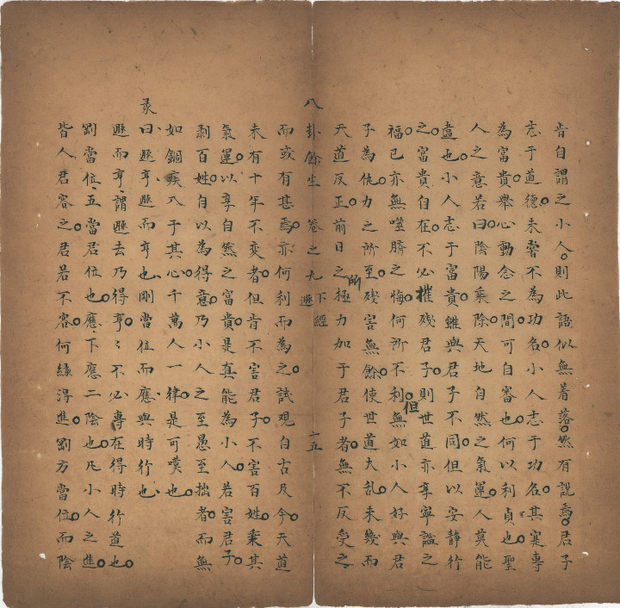 肯自謂之小人則此語似無着落然有說焉君子
志于道德未嘗不為功名小人志于功名其實專
為富貴舉心動念之間可自審也何以利貞也聖
人之意若曰陰陽乘除天地自然之氣運人莫能
盡也小人志于富貴雖與君子不同但以安靜行
之富貴自在不必摧殘君子則世道亦享寧謐之
福己亦無噬臍之悔何所不利但無如小人好與君
子為仇力之所至殘害無餘使世道大亂未幾而
天道反正前日之所極力加于君子者無不反受之
八卦餘生 卷之九 下經 遯 二五
而或有甚焉亦何利而為之試觀自古及今天道
未有十年不變者但肯不害君子不害百姓乘其
氣運以享自然之富貴是真能為小人若害君子
剥百姓自以為得意乃小人之至愚至拙者而無
如錮疾入于其心千萬人一律是可嘆也
彖曰遯亨遯而亨也剛當位而應與時行也
遯而亨謂遯去乃得亨〻不必專在得時行道也
劉當位五當君位也應下應二陰也凡小人之進
皆人君容之君若不容何緣得進劉方當位而陰